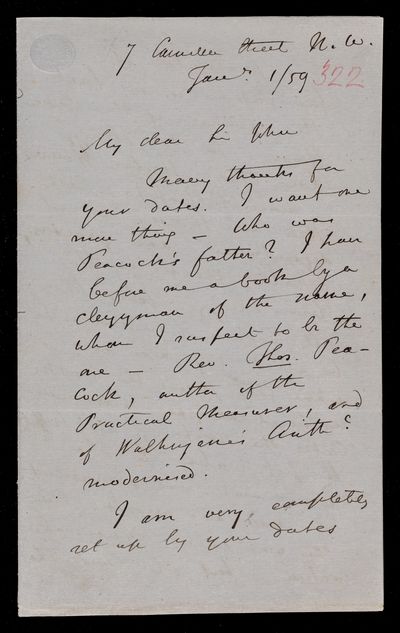 7 Camden Street N. W.
Jany. 1/59 322
My dear Sir John
Many thanks for
your dates. I want one
more thing – Who was
Peacock's father? I have
before me a book by a
clergyman of the name,
whom I suspect to be the
one – Rev. Thos. Pea-
cock, author of the
Practical Measurer, and
of Walkingame's Arithc.
modernised.
I am very completely
set up by your dates